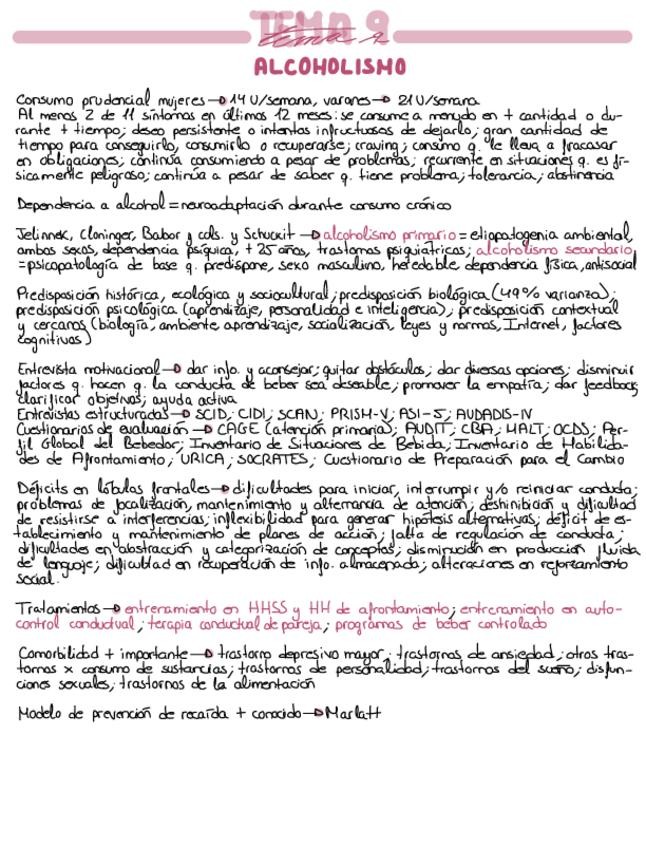 TEMA 9
tema 9
ALCOHOLISMO
Consumo prudencial mujeres → 14 U/semana, varones → 21 U/semana
Al menos 2 de 11 síntomas en últimos 12 meses: se consume a menudo en + cantidad o du-
rante + tiempo; deseo persistente o intentos infructuosos de dejarlo; gran cantidad de
tiempo para conseguirlo, consumirlo o recuperarse; craving; consumo q. le lleva a fracasar
en obligaciones; continúa consumiendo a pesar de problemas; recurrente en situaciones q. es fí-
sicamente peligroso; continúa a pesar de saber q. tiene problema; tolerancia; abstinencia
Dependencia a alcohol = neuroadaptación durante consumo crónico
Jelinnek, Cloninger, Babor y cols. y Schuckit → alcoholismo primario = etiopatogenia ambiental,
ambos sexos, dependencia psíquica, + 25 años, trastornos psiquiátricos; alcoholismo secundario
= psicopatología de base q. predispone, sexo masculino, heredable, dependencia física, antisocial
Predisposición histórica, ecológica y sociocultural; predisposición biológica (49% varianza);
predisposición psicológica (aprendizaje, personalidad e inteligencia); predisposición contextual
y cercanos (biología, ambiente, aprendizaje, socialización, leyes y normas, Internet, factores
cognitivos)
Entrevista motivacional → dar info. y aconsejar; quitar obstáculos; dar diversas opciones; disminuir
factores q. hacen q. la conducta de beber sea deseable; promover la empatía; dar feedback;
clarificar objetivos; ayuda activa
Entrevistas estructuradas → SCID; CIDI; SCAN; PRISM-V; ASI-5; AUDADIS-IV
Cuestionarios de evaluación → CAGE (atención primaria); AUDIT; CBA; MALT; OCDS; Per-
fil Global del Bebedor; Inventario de Situaciones de Bebida; Inventario de Habilida-
des de Afrontamiento; URICA; SOCRATES; Cuestionario de Preparación para el Cambio
Déficits en lóbulos frontales → dificultades para iniciar, interrumpir y/o reiniciar conducta;
problemas de focalización, mantenimiento y alternancia de atención; deshinibición y dificultad
de resistirse a interferencias; inflexibilidad para generar hipótesis alternativas; déficit de es-
tablecimiento y mantenimiento de planes de acción; falta de regulación de conducta;
dificultades en abstracción y categorización de conceptos; disminución en producción fluida
de lenguaje; dificultad en recuperación de info. almacenada; alteraciones en reforzamiento
social.
Tratamientos → entrenamiento en HHSS y HH de afrontamiento; entrenamiento en auto-
control conductual; terapia conductual de pareja; programas de beber controlado
Comorbilidad + importante → trastorno depresivo mayor; trastornos de ansiedad; otros tras-
tornos x consumo de sustancias; trastornos de personalidad; trastornos del sueño; disfun-
ciones sexuales; trastornos de la alimentación
Modelo de prevención de recaída + conocido → Marlatt